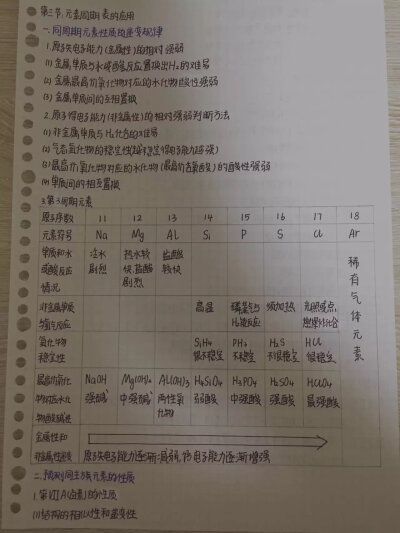 第三节、元素周期表的应用
一、同周期元素性质的递变规律
1.原子失电子能力(金属性)的相对强弱
(1)金属单质与水或酸反应置换出H₂的难易
(2)金属最高价氧化物对应的水化物碱性强弱
(3)金属单质间的互相置换
2.原子得电子能力(非金属性)的相对强弱判断方法
(1)非金属单质与H₂化合的难易
(2)气态氢化物的稳定性(越稳定得电子能力越强)
(3)最高价氧化物对应的水化物(最高价含氧酸)的酸性强弱
(4)单质间的相互置换
3.第3周期元素
原子序数 11 12 13 14 15 16 17 18
元素符号 Na Mg Al Si P S Cl Ar
单质和水 冷水 热水较 盐酸 稀
或酸反应 剧烈 快,盐酸 较快 有
情况 剧烈 气
非金属单质 高温 磷蒸气与 须加热 光照或点 体
与氢气反应 H₂能反应 燃爆炸化合 元
氢化物 SiH₄ PH₃ H₂S HCl 素
稳定性 很不稳定 不稳定 不很稳定 很稳定
最高价氧化 NaOH Mg(OH)₂ Al(OH)₃ H₂SiO₃ H₃PO₄ H₂SO₄ HClO₄
物对应水化 强碱 中强碱 两性氢 弱酸 中强酸 强酸 最强酸
物酸碱性 化物
金属性和
非金属性递变 原子失电子能力逐渐减弱,得电子能力逐渐增强
二、预测同主族元素的性质
1.第ⅦA(卤素)的性质
(1)结构的相似性和递变性